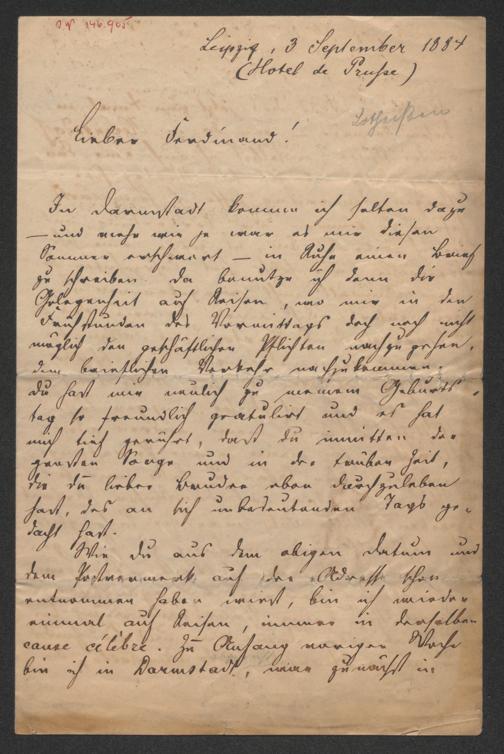 J.N. 146.905
Leipzig, 3 September 1884
(Hotel de Prusse)
Lotheißen
Lieber Ferdinand!
In Darmstadt komme ich selten dazu
— und mehr wie je war es mir diesen
Sommer erschwert — in Ruhe einen Brief
zu schreiben. Da benutze ich denn die
Gelegenheit auf Reisen, wo mir in den
Frühstunden des Vormittags doch noch nicht
möglich den geschäftlichen Pflichten nachzugehen,
dem brieflichen Verkehr nachzukommen.
Du hast mir neulich zu meinem Geburts-
tag so freundlich gratulirt und es hat
mich tief gerührt, daß du inmitten der
großen Sorge und in der trüben Zeit,
die du lieber Bruder eben durchzuleben
hast, des an sich unbedeutenden Tags ge-
dacht hast.
Wie du aus dem obigen Datum und
dem Postvermerk auf der Adresse schon
entnommen haben wirst, bin ich wieder
einmal auf Reisen, immer in derselben
cause célèbre. Zu Anfang voriger Woche
bin ich in Darmstadt, war zunächst in